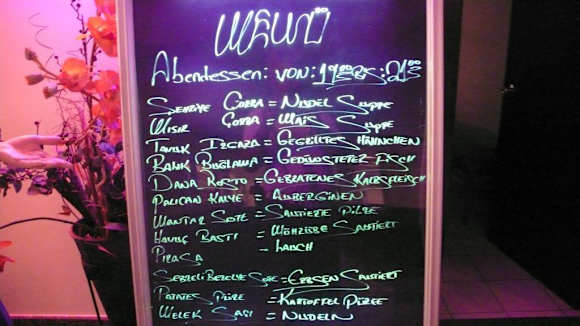 MENÜ
Abendessen: von: 19⁰⁰ BIS: 21⁰⁰
Sehriye Corba = Nudel Suppe
Misir Corba = Mais Suppe
Tavuk Izgara = Gegrilltes Hähnchen
Balik Buğlama = Gedünsteter Fisch
Dana Rosto = Gebratenes Kalbsfleisch
Patlican = Auberginen
Mantar Sote = Sautierte Pilze
Havuc Basti = Sautiert
Pirasa - Lauch
Bezelye = Erbsen Sautiert
Patates Püre = Kartoffel Püree
= Nudeln